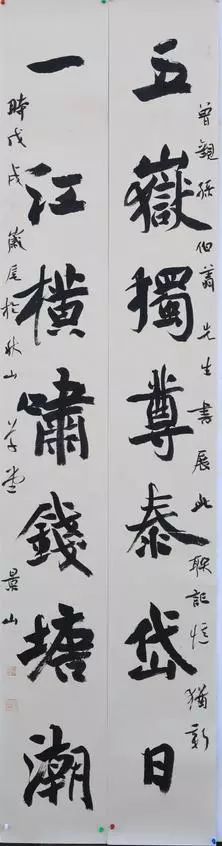 五嶽獨尊泰岱日
曾觀孫伯翁先生書展此聯記憶猶新
一江橫嘯錢塘潮
時戊戌歲尾於秋山草堂 景山